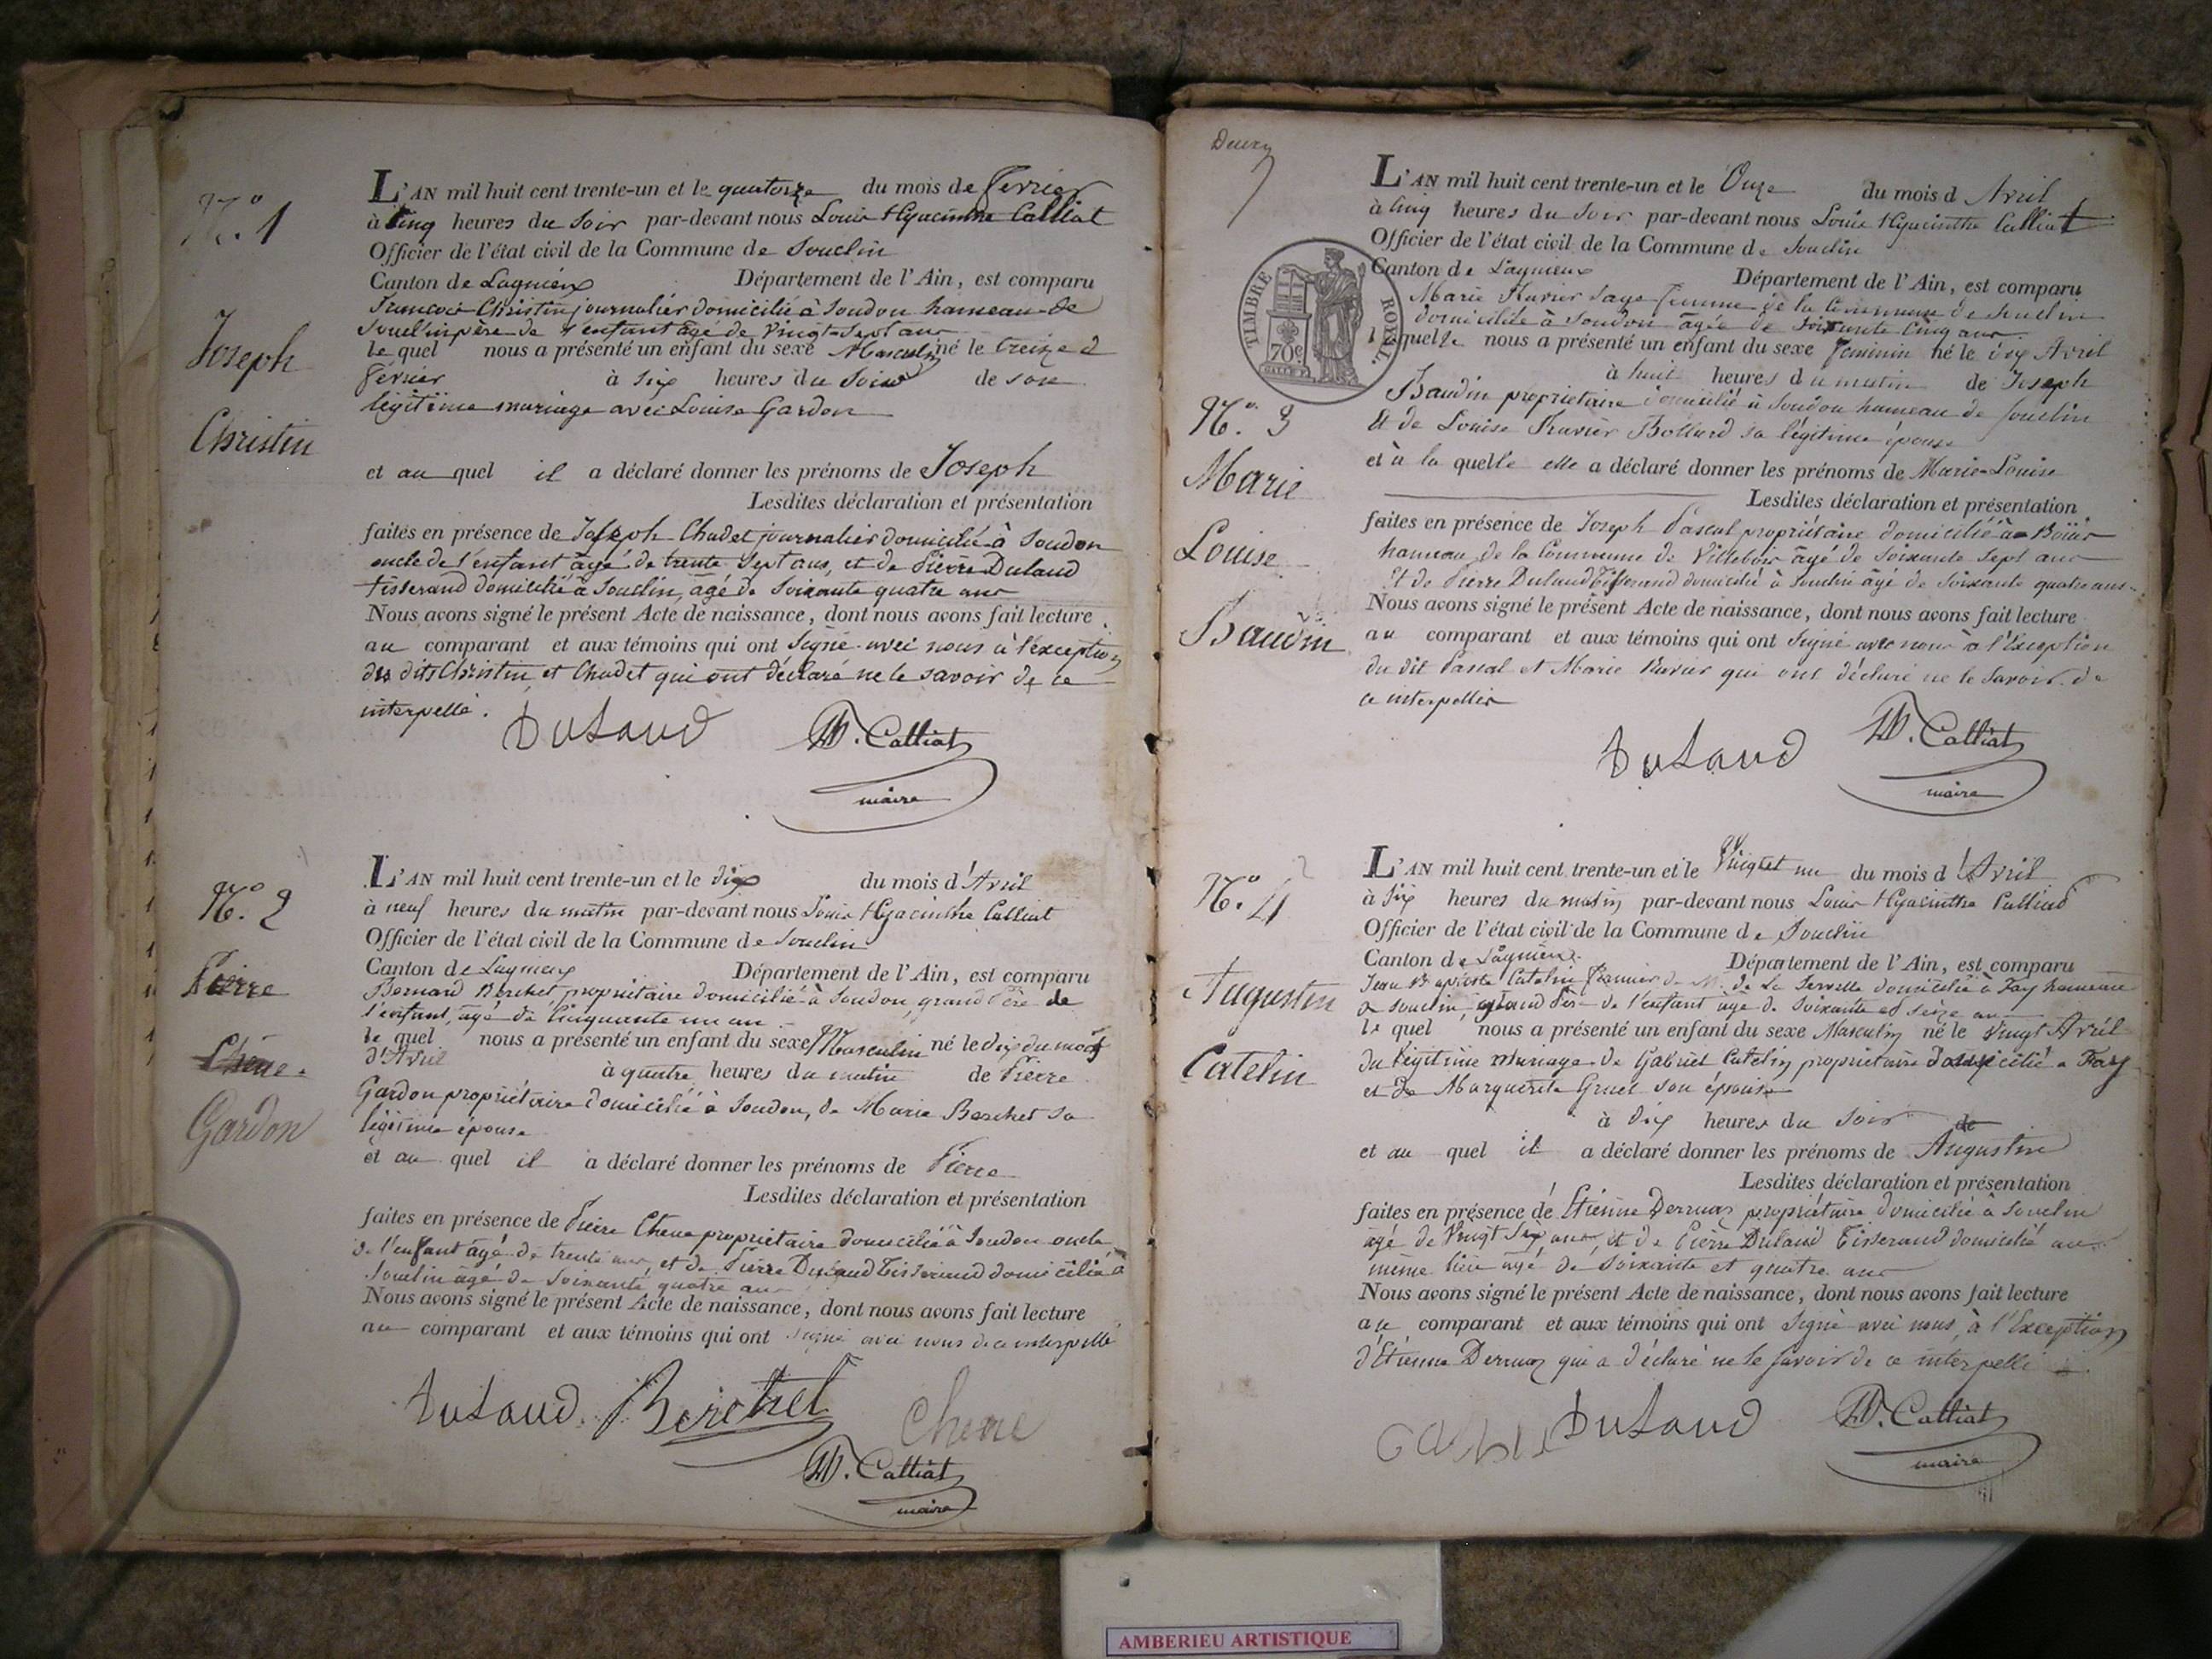 N.o 1
Joseph
Christin
L'AN mil huit cent trente-un et le quatorze du mois de fevrier
à Cinq heures du Soir par-devant nous Louis Hyacinthe Calliat
Officier de l'état civil de la Commune de Souclin
Canton de Lagnieux Département de l'Ain, est comparu
francois Christin journalier domicilié à Soudon hameau de
Souclin père de l'enfant âgé de Vingt-Sept ans
le quel nous a présenté un enfant du sexe Masculin né le treize
fevrier à Six heures du Soir de son
légitime mariage avec Louise Gardon
et au quel il a déclaré donner les prénoms de Joseph
Lesdites déclaration et présentation
faites en présence de Joseph Chudet journalier domicilié à Soudon
oncle de l'enfant âgé de trente Sept ans, et de Pierre Dulaud
tisserand domicilié à Souclin, âgé de Soixante quatre ans
Nous avons signé le présent Acte de naissance, dont nous avons fait lecture
au comparant et aux témoins qui ont Signé avec nous à l'exception
des dits Christin et Chudet qui ont déclaré ne le savoir de ce
interpellé.
Dulaud H. Calliat
maire
N.o 2
Pierre
Chêne.
Gardon
L'AN mil huit cent trente-un et le dix du mois d'Avril
à neuf heures du matin par-devant nous Louis Hyacinthe Calliat
Officier de l'état civil de la Commune de Souclin
Canton de Lagnieux Département de l'Ain, est comparu
Bernard Berchet propriétaire domicilié à Soudon, grand Père de
l'enfant, âgé de Cinquante un an
le quel nous a présenté un enfant du sexe Masculin né le dix du mois
d'Avril à quatre heures du matin de Pierre
Gardon propriétaire domicilié à Soudon, de Marie Berchet sa
légitime épouse
et au quel il a déclaré donner les prénoms de Pierre
Lesdites déclaration et présentation
faites en présence de Pierre Chene propriétaire domicilié à Soudon oncle
de l'enfant âgé de trente ans, et de Pierre Dulaud tisserand domicilié à
Souclin âgé de Soixante quatre ans
Nous avons signé le présent Acte de naissance, dont nous avons fait lecture
au comparant et aux témoins qui ont signé avec nous de ce interpellé
Dulaud Berchet Chene
H. Calliat
maire
TIMBRE ROYAL
70c
N.o 3
Marie
Louise
Baudin
L'AN mil huit cent trente-un et le Onze du mois d Avril
à Cinq heures du Soir par-devant nous Louis Hyacinthe Calliat
Officier de l'état civil de la Commune de Souclin
Canton de Lagnieux Département de l'Ain, est comparu
Marie Ravier Sage femme de la Commune de Souclin
domiciliée à Soudon âgée de Soixante Cinq ans
laquelle nous a présenté un enfant du sexe feminin né le dix Avril
à huit heures du matin de Joseph
Baudin propriétaire domicilié à Soudon hameau de Souclin
Et de Louise Ravier Bollard sa légitime épouse
et à la quelle elle a déclaré donner les prénoms de Marie-Louise
Lesdites déclaration et présentation
faites en présence de Joseph Pascal propriétaire domicilié à Bouis
hameau de la Commune de Villebois âgé de Soixante Sept ans
Et de Pierre Dulaud Tisserand domicilié à Souclin âgé de Soixante quatre ans
Nous avons signé le présent Acte de naissance, dont nous avons fait lecture
au comparant et aux témoins qui ont Signé avec nous à l'Exception
du dit Pascal et Marie Ravier qui ont déclaré ne le Savoir de
ce interpellés
Dulaud H. Calliat
maire
N.o 4
Augustin
Catelin
L'AN mil huit cent trente-un et le Vingt et un du mois d'Avril
à Six heures du matin par-devant nous Louis Hyacinthe Calliat
Officier de l'état civil de la Commune de Souclin
Canton de Lagnieux Département de l'Ain, est comparu
Jean Baptiste Catelin fermier de M. de La Servette domicilié à Fay hameau
de Souclin, grand Père de l'enfant âgé de Soixante et Seize ans
le quel nous a présenté un enfant du sexe Masculin né le Vingt Avril
du légitime mariage de Gabriel Catelin propriétaire domicilié à Fay
et de Marguerite Gruel son épouse
à Dix heures du Soir de
et au quel il a déclaré donner les prénoms de Augustin
Lesdites déclaration et présentation
faites en présence de Etienne Dermas propriétaire domicilié à Souclin
âgé de Vingt Six ans, et de Pierre Dulaud Tisserand domicilié au
même lieu âgé de Soixante et quatre ans
Nous avons signé le présent Acte de naissance, dont nous avons fait lecture
au comparant et aux témoins qui ont Signé avec nous, à l'Exception
d'Etienne Dermas qui a déclaré ne le Savoir de ce interpellé
Dulaud H. Calliat
maire
AMBERIEU ARTISTIQUE